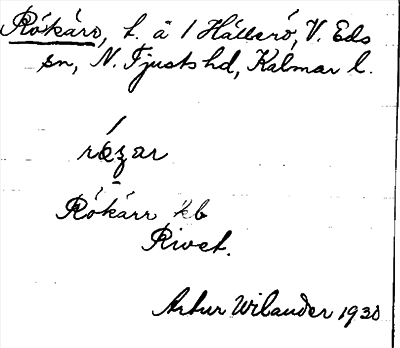 Rökärr, t. ä / Hällarö, V. Eds
sn, N. Tjusts hd, Kalmar l.
rø̨zar
Rökärr kb
Rivet.
Artur Wilander 1930